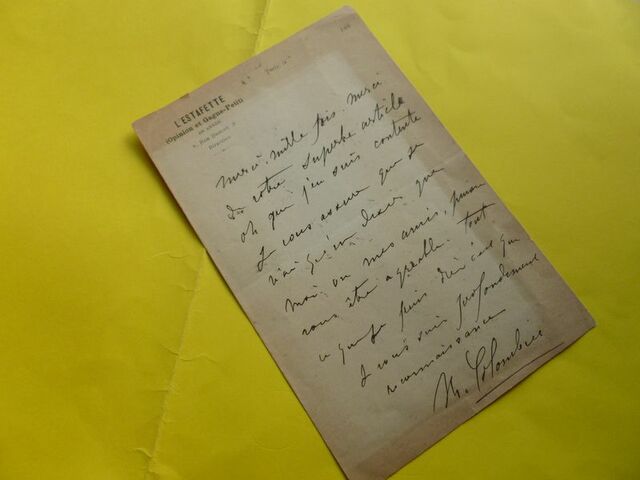 Paris, le
L'ESTAFETTE
(Opinion et Gagne-Petit)
Merci, mille fois merci
de votre superbe article
oh que j'en suis contente
Je vous assure que je
n'ai qu'un désir, que
moi ou mes amis, puissions
vous être agréable. tout
ce que je puis dire c'est que
je vous suis profondément
reconnaissance
M. Colombier